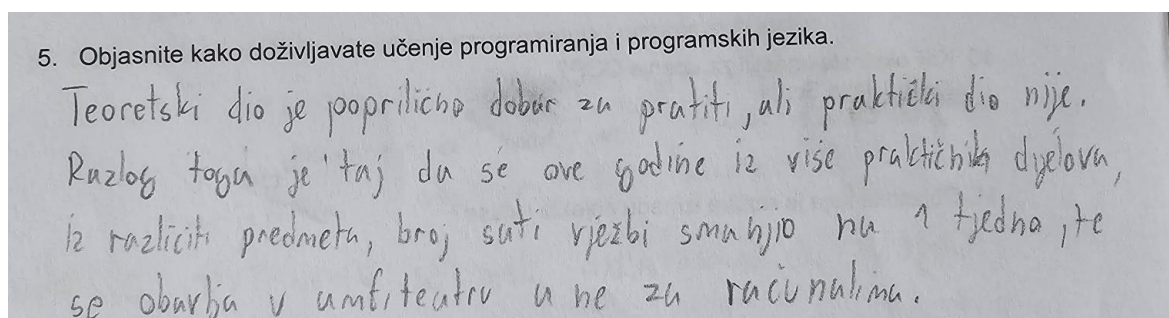 5. Objasnite kako doživljavate učenje programiranja i programskih jezika.
Teoretski dio je poprilično dobar za pratiti, ali praktički dio nije.
Razlog toga je taj da se ove godine iz više praktičnih dijelova,
iz različiti predmeta, broj sati vježbi smanjio na 1 tjedno, te
se obavlja u amfiteatru a ne za računalima.